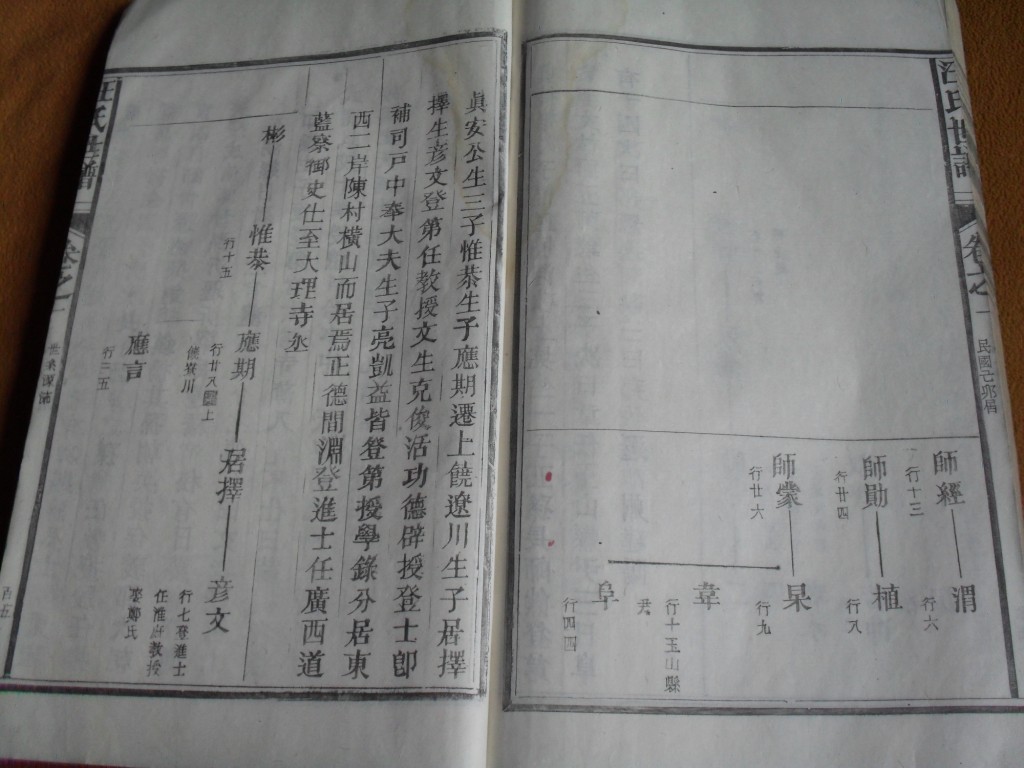 汪氏世譜
卷之一
民國乙卯眉
師經
行十三
渭
行六
師勛
行廿四
植
行八
師蒙
行廿六
杲
行九
韋
行十玉山縣
尹
阜
行四四
眞安公生三子惟恭生子應期遷上饒遼川生子居擇
擇生彥文登第任教授文生克俊活功德辟授登士郎
補司戶中奉大夫生子亮凱益皆登第授學錄分居東
西二岸陳村橫山而居焉正德間淵登進士任廣西道
藍察御史仕至大理寺丞
彬
惟恭
行十五
應期
行廿八遷上
饒寮川
居擇
彥文
行七登進士
任淮府教授
娶鄭氏
應言
行三五
汪氏世譜
卷之一
世系源流